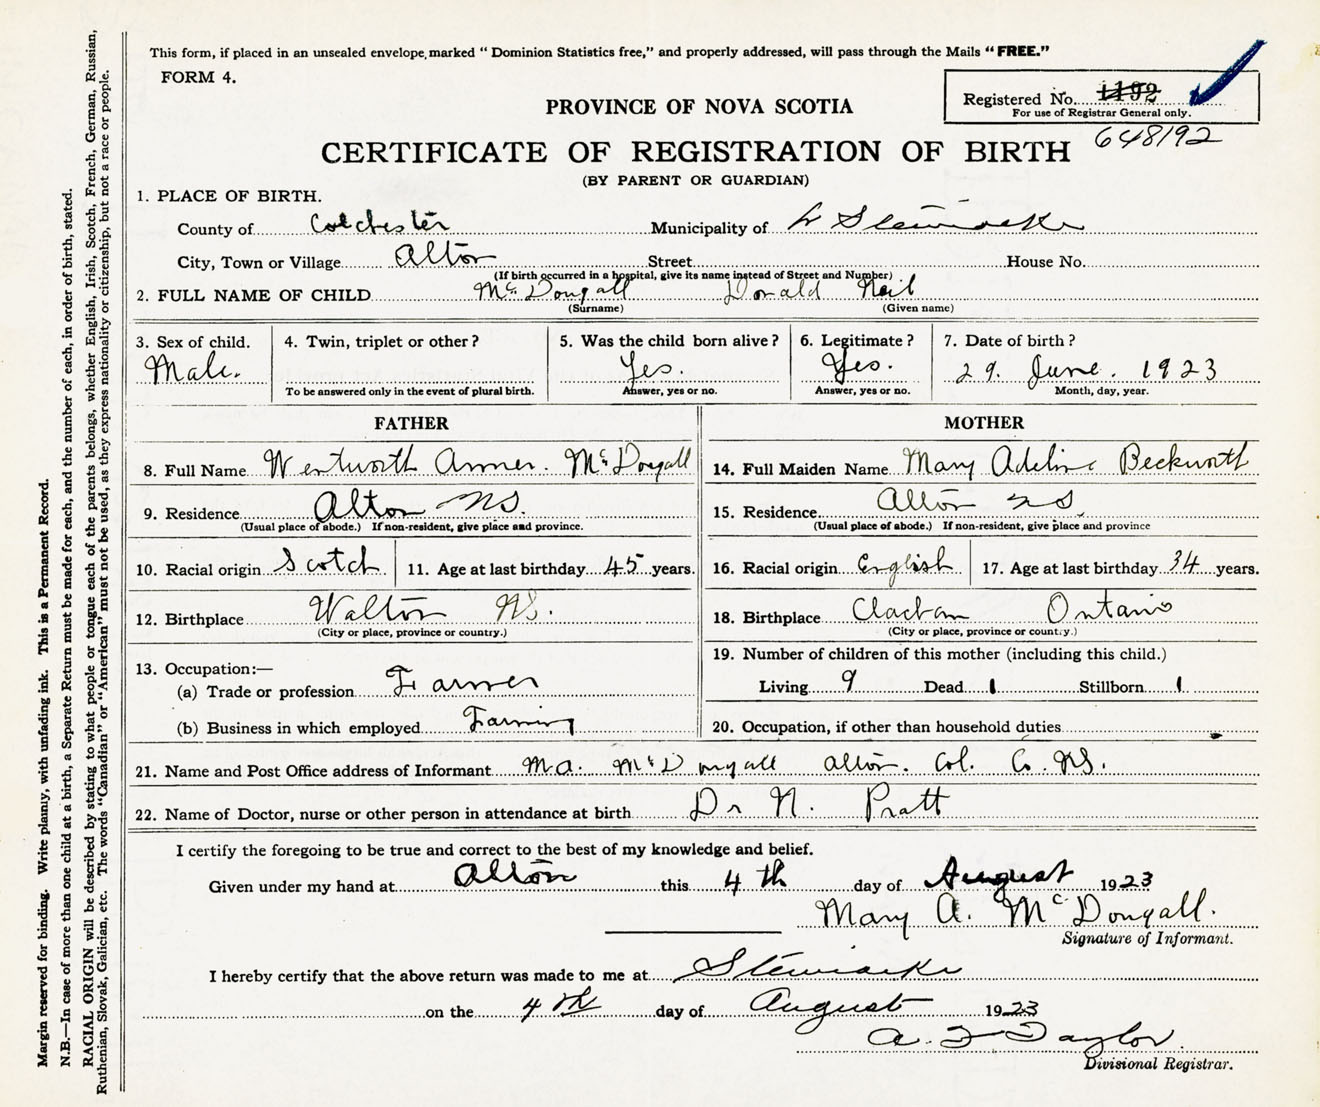 This form, if placed in an unsealed envelope, marked "Dominion Statistics free," and properly addressed, will pass through the Mails "FREE."
FORM 4.
Registered No. 1192
For use of Registrar General only.
648192
PROVINCE OF NOVA SCOTIA
CERTIFICATE OF REGISTRATION OF BIRTH
(BY PARENT OR GUARDIAN)
1. PLACE OF BIRTH.
County of Colchester Municipality of L Stewiacke
City, Town or Village Alton Street House No.
(If birth occurred in a hospital, give its name instead of Street and Number)
2. FULL NAME OF CHILD McDougall Donald Neil
(Surname) (Given name)
3. Sex of child. 4. Twin, triplet or other? 5. Was the child born alive? 6. Legitimate? 7. Date of birth?
Male. Yes. Yes. 29. June. 1923
To be answered only in the event of plural birth. Answer, yes or no. Answer, yes or no. Month, day, year.
FATHER MOTHER
8. Full Name Wentworth Anner. McDougall 14. Full Maiden Name Mary Adeline Beckworth
9. Residence Alton NS. 15. Residence Alton NS
(Usual place of abode.) If non-resident, give place and province. (Usual place of abode.) If non-resident, give place and province
10. Racial origin Scotch 11. Age at last birthday 45 years. 16. Racial origin English 17. Age at last birthday 34 years.
12. Birthplace Walton NS. 18. Birthplace Clachan Ontario
(City or place, province or country.) (City or place, province or country.)
13. Occupation:— 19. Number of children of this mother (including this child.)
(a) Trade or profession Farmer Living 9 Dead 1 Stillborn 1
(b) Business in which employed Farming 20. Occupation, if other than household duties
21. Name and Post Office address of Informant M.A. McDougall Alton. Col. Co. NS.
22. Name of Doctor, nurse or other person in attendance at birth Dr N. Pratt
I certify the foregoing to be true and correct to the best of my knowledge and belief.
Given under my hand at Alton this 4th day of August 1923
Mary A. McDougall.
Signature of Informant.
I hereby certify that the above return was made to me at Stewiacke
on the 4th day of August 1923
A. F Taylor.
Divisional Registrar.
Margin reserved for binding. Write plainly, with unfading ink. This is a Permanent Record.
N.B.—In case of more than one child at a birth, a Separate Return must be made for each, and the number of each, in order of birth, stated.
RACIAL ORIGIN will be described by stating to what people or tongue each of the parents belongs, whether English, Irish, Scotch, French, German, Russian,
Ruthenian, Slovak, Galician, etc. The words "Canadian" or "American" must not be used, as they express nationality or citizenship, but not a race or people.